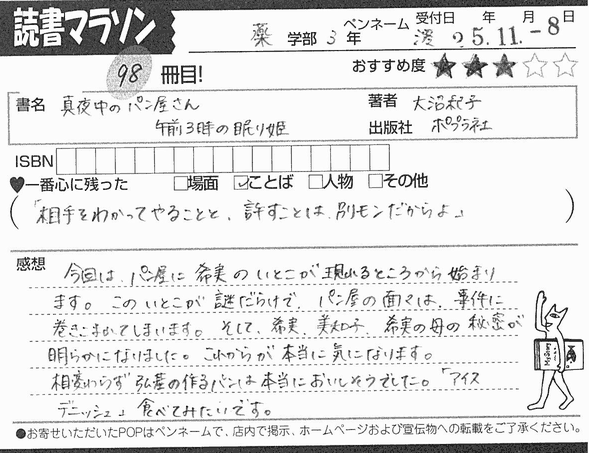 読書マラソン
薬 学部 3 年
ペンネーム 渡
受付日 年 月 日
25.11.-8
98 冊目!
おすすめ度 ★★★☆☆
書名 真夜中のパン屋さん
午前3時の眠り姫
著者 大沼紀子
出版社 ポプラ社
ISBN
♥一番心に残った □場面 ☑ことば □人物 □その他
(「相手をわかってやることと、許すことは、別モンだからよ」)
感想
今回は、パン屋に希実のいとこが現れるところから始まり
ます。このいとこが謎だらけで、パン屋の面々は、事件に
巻きこまれてしまいます。そして、希実、美和子、希実の母の秘密が
明らかになりました。これからが本当に気になります。
相変わらず弘基の作るパンは本当においしそうでした。「アイス
デニッシュ」食べてみたいです。
●お寄せいただいたPOPはペンネームで、店内で掲示、ホームページおよび宣伝物への転載をご了承ください。